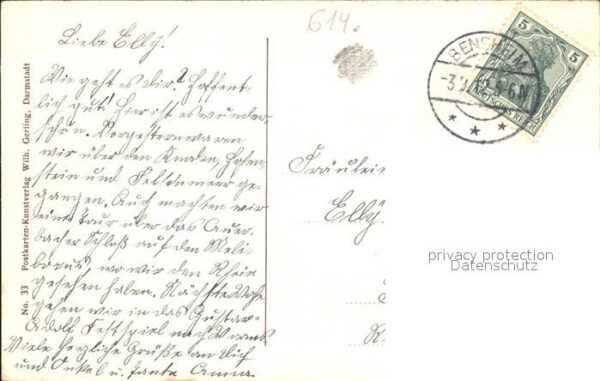 614.
Liebe Elly!
Wie geht es dir? Hoffent-
lich gut! Hier ist es wunder
schön. Vorgestern waren
wir über den Knoden, Hohen-
stein und Felsenmeer ge-
gangen. Auch machten wir
eine Tour über das Auer-
bacher Schloß auf den Meli-
bogus, wo wir den Rhein
gesehen haben. Nächste Woche
gehen wir in das Gustav-
Adolf Festspiel nach Worms
Viele herzliche Grüße an Dich
und Onkel u. Tante Anna.
No. 33 Postkarten-Kunstverlag Wilh. Gerling, Darmstadt
BENSHEIM
5-6N
5 5
DEUTSCHES REICH
Fräulein
Elly
privacy protection
Datenschutz